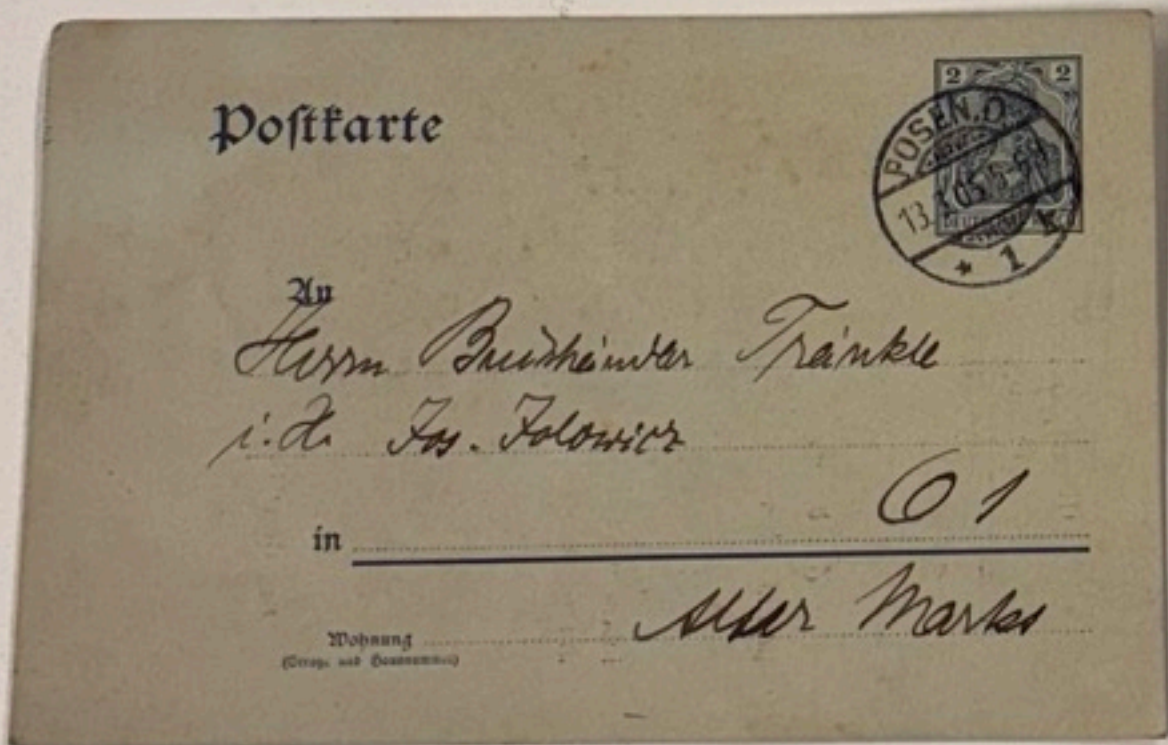 Postkarte
2 2
POSEN.O.
13. 05. 5-6N
* 1 k
An
Herrn Buchhändler Tränkle
i.H. Jos. Jolowicz
O 1
in
Alter Markt
Wohnung
(Straße und Hausnummer)